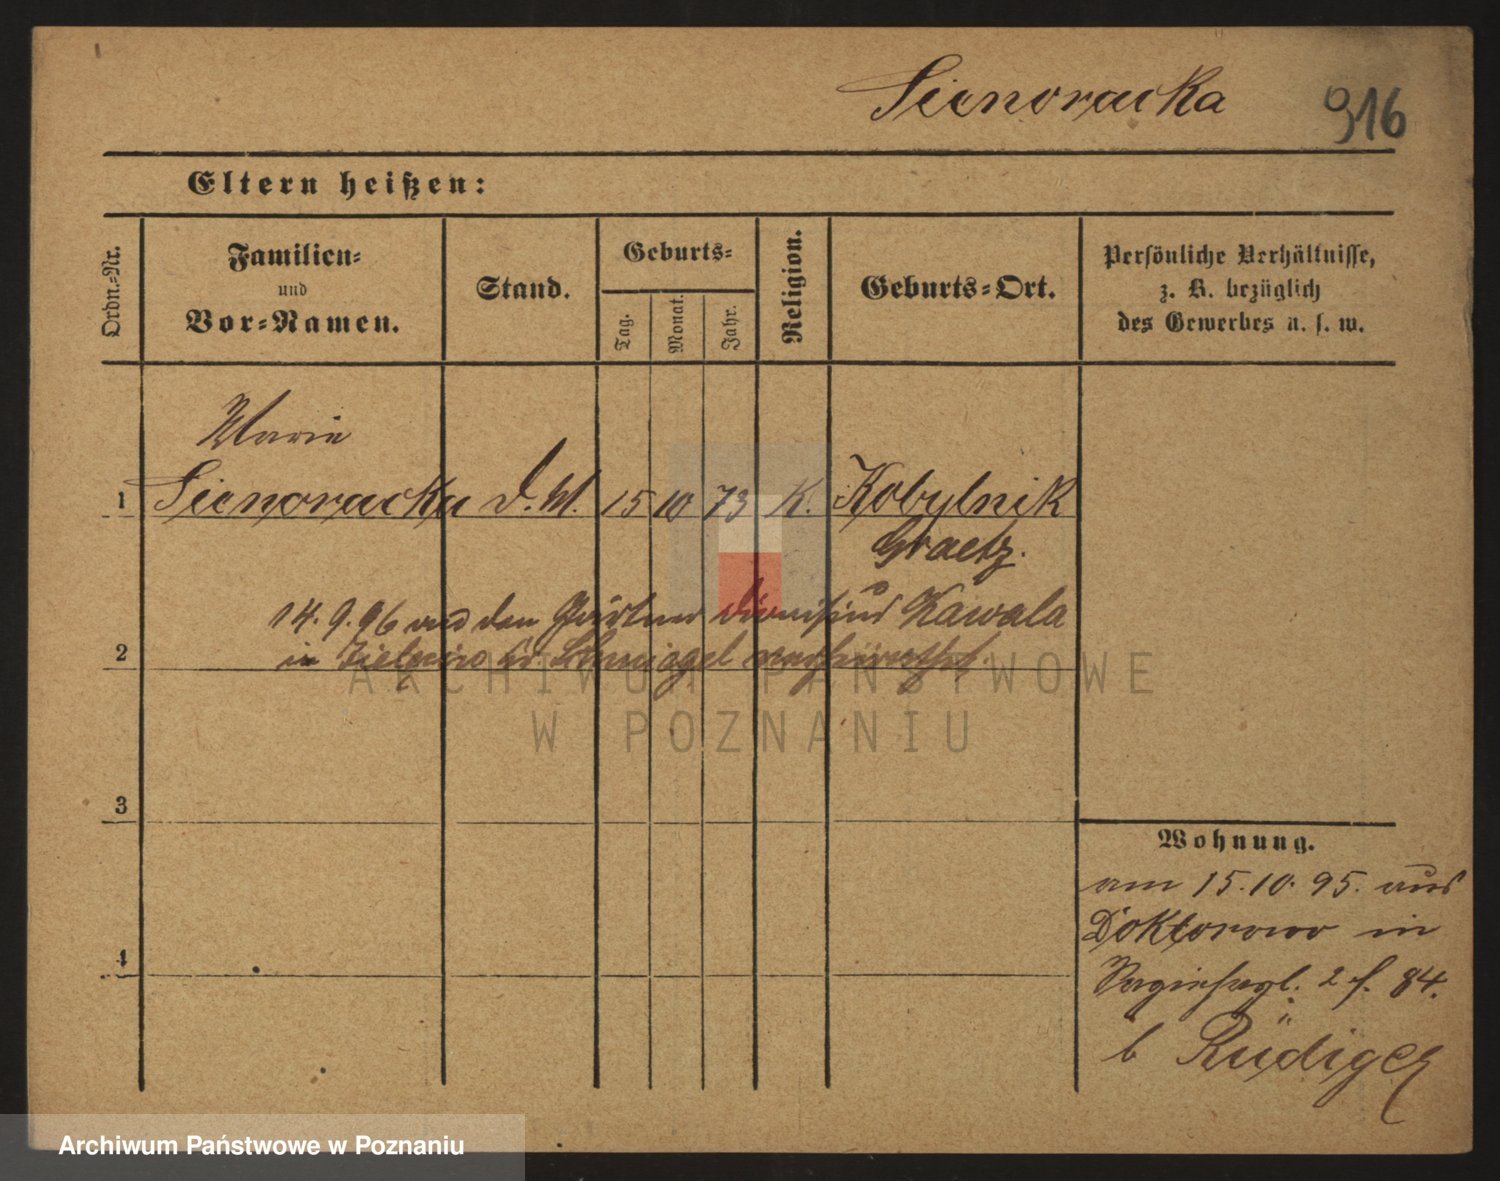 Sienoracka 916
Eltern heißen:
Ordn.-Nr.
Familien-
und
Vor-Namen.
Stand.
Geburts-
Tag.
Monat.
Jahr.
Religion.
Geburts-Ort.
Persönliche Verhältnisse,
z. B. bezüglich
des Gewerbes u. s. w.
Marie
1 Sienoracka D. M. 15 10 73 K. Kobylnik
Graetz.
14. 9. 96 an den Gärtner Kawala
2 in Schmiegel verheirathet.
ARCHIWUM PAŃSTWOWE
W POZNANIU
3
Wohnung.
am 15. 10. 95. aus
Doktorowo in
4
2 f. 84.
b Rüdiger
Archiwum Państwowe w Poznaniu